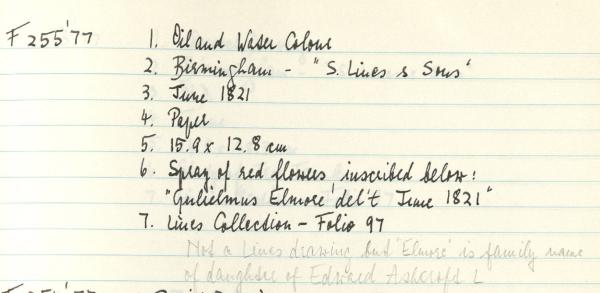 F 255'77 1. Oil and Water Colour
2. Birmingham - "S. Lines & Sons"
3. June 1821
4. Paper
5. 15.9 x 12.8 cm
6. Spray of red flowers, inscribed below:
"Gulielmus Elmore del't June 1821"
7. Lines Collection - Folio 97
Not a Lines drawing but 'Elmore' is family name
of daughter of Edward Ashcroft L